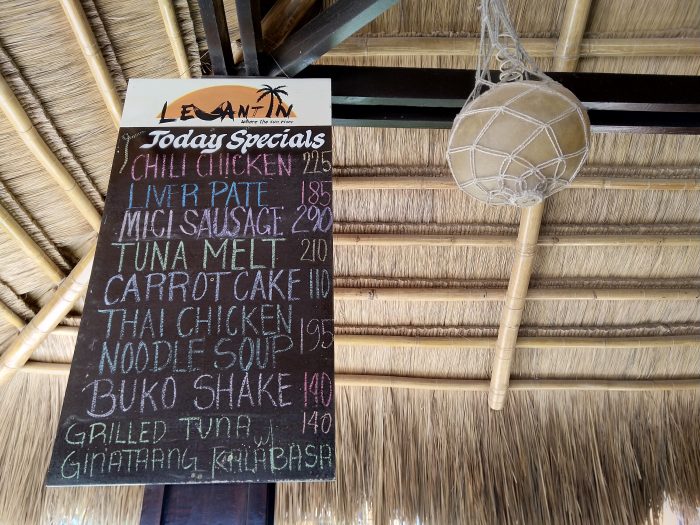 LEVANTIN
Where the sun rises
Today Specials
CHILI CHICKEN 225
LIVER PATE 185
MICI SAUSAGE 290
TUNA MELT 210
CARROT CAKE 110
THAI CHICKEN
NOODLE SOUP 195
BUKO SHAKE 140
GRILLED TUNA W/ 140
GINATAANG KALABASA